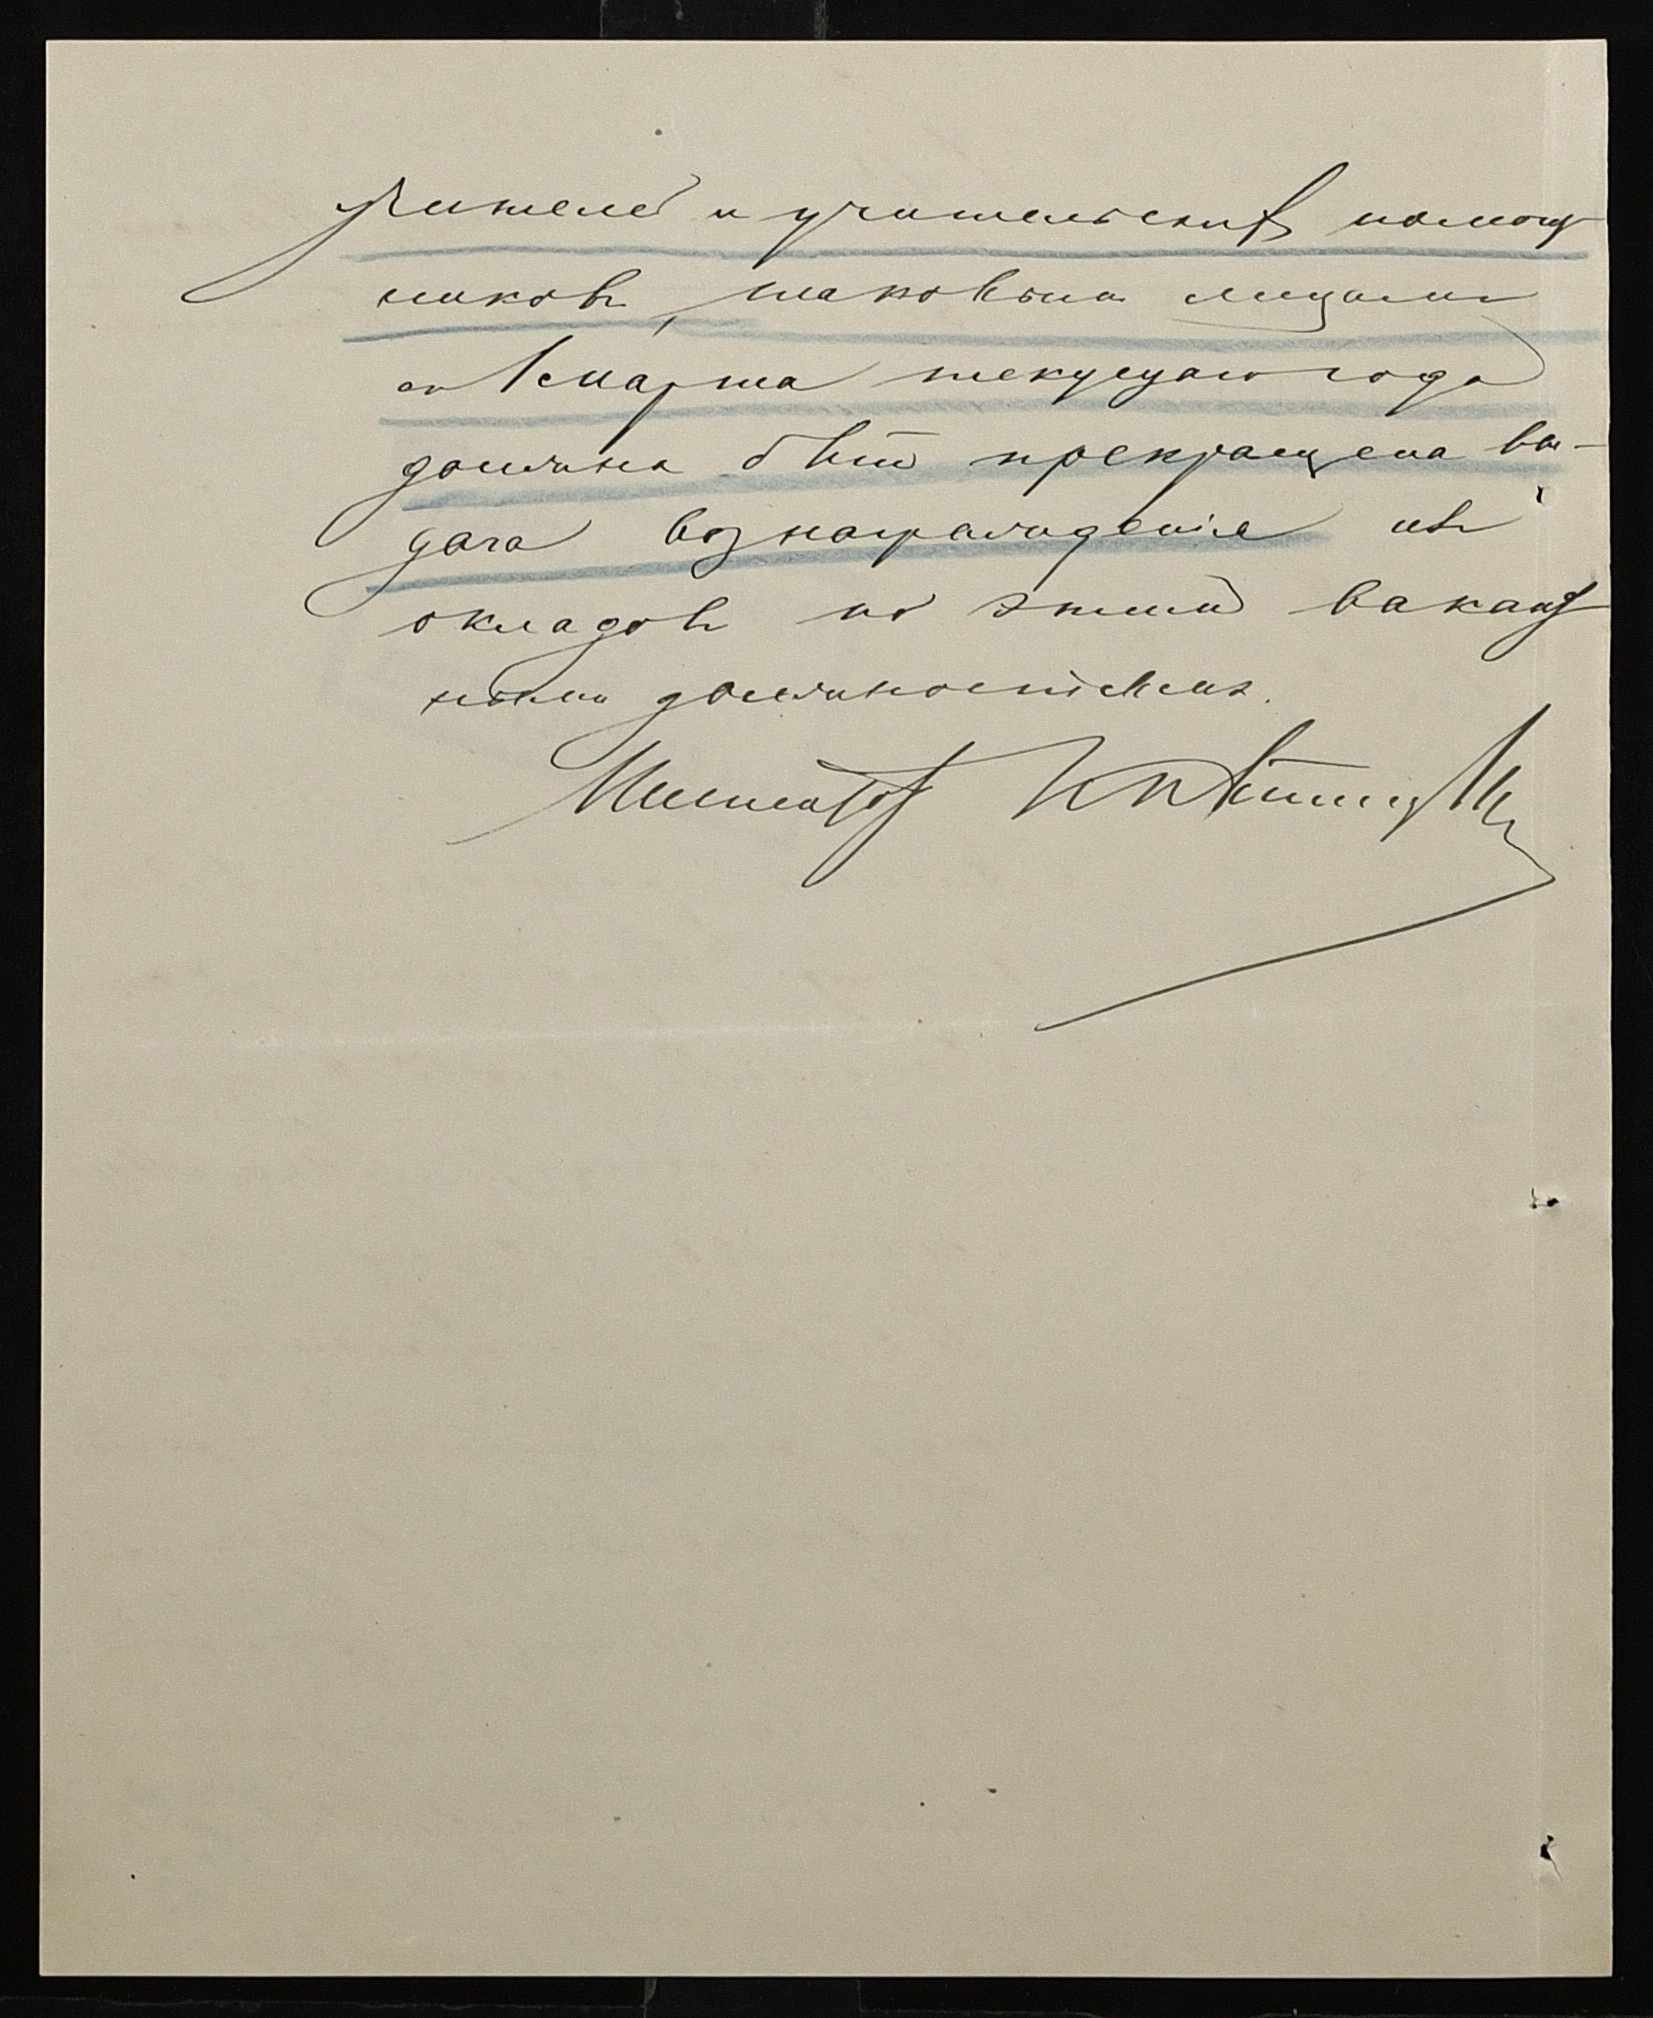 учителей и учительских помощ
никовъ, таковымъ лицамъ
съ 1 марта текущаго года
должна быть прекращена вы-
дача вознагражденія изъ
окладовъ по этимъ вакант
нымъ должностямъ.
Инспекторъ